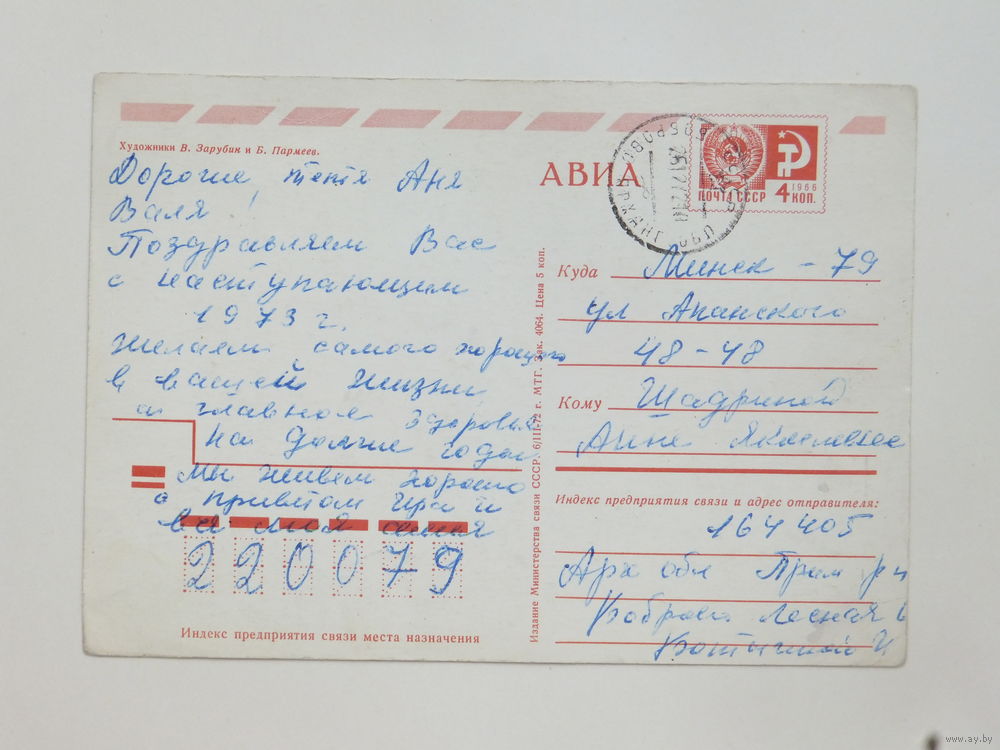 Художники В. Зарубин и Б. Пармеев.
Дорогие, тетя Аня
Валя!
Поздравляем Вас
с наступающим
1973 г.
Желаем самого хорошего
в вашей жизни
а главное здоровья
На долгие годы
Мы живем хорошо
с приветом Ира и
вся моя семья
220079
Индекс предприятия связи места назначения
Издание Министерства связи СССР. 6/III-72 г. МТГ. Зак. 4064. Цена 5 коп.
АВИА
ПОЧТА СССР
1966
4 КОП.
Куда Минск - 79
ул Апанского
48-48
Кому Шадриной
Анне Яковлевне
Индекс предприятия связи и адрес отправителя:
164405
Арх обл Прим р н
Боброво Лесная
И
www.ay.by